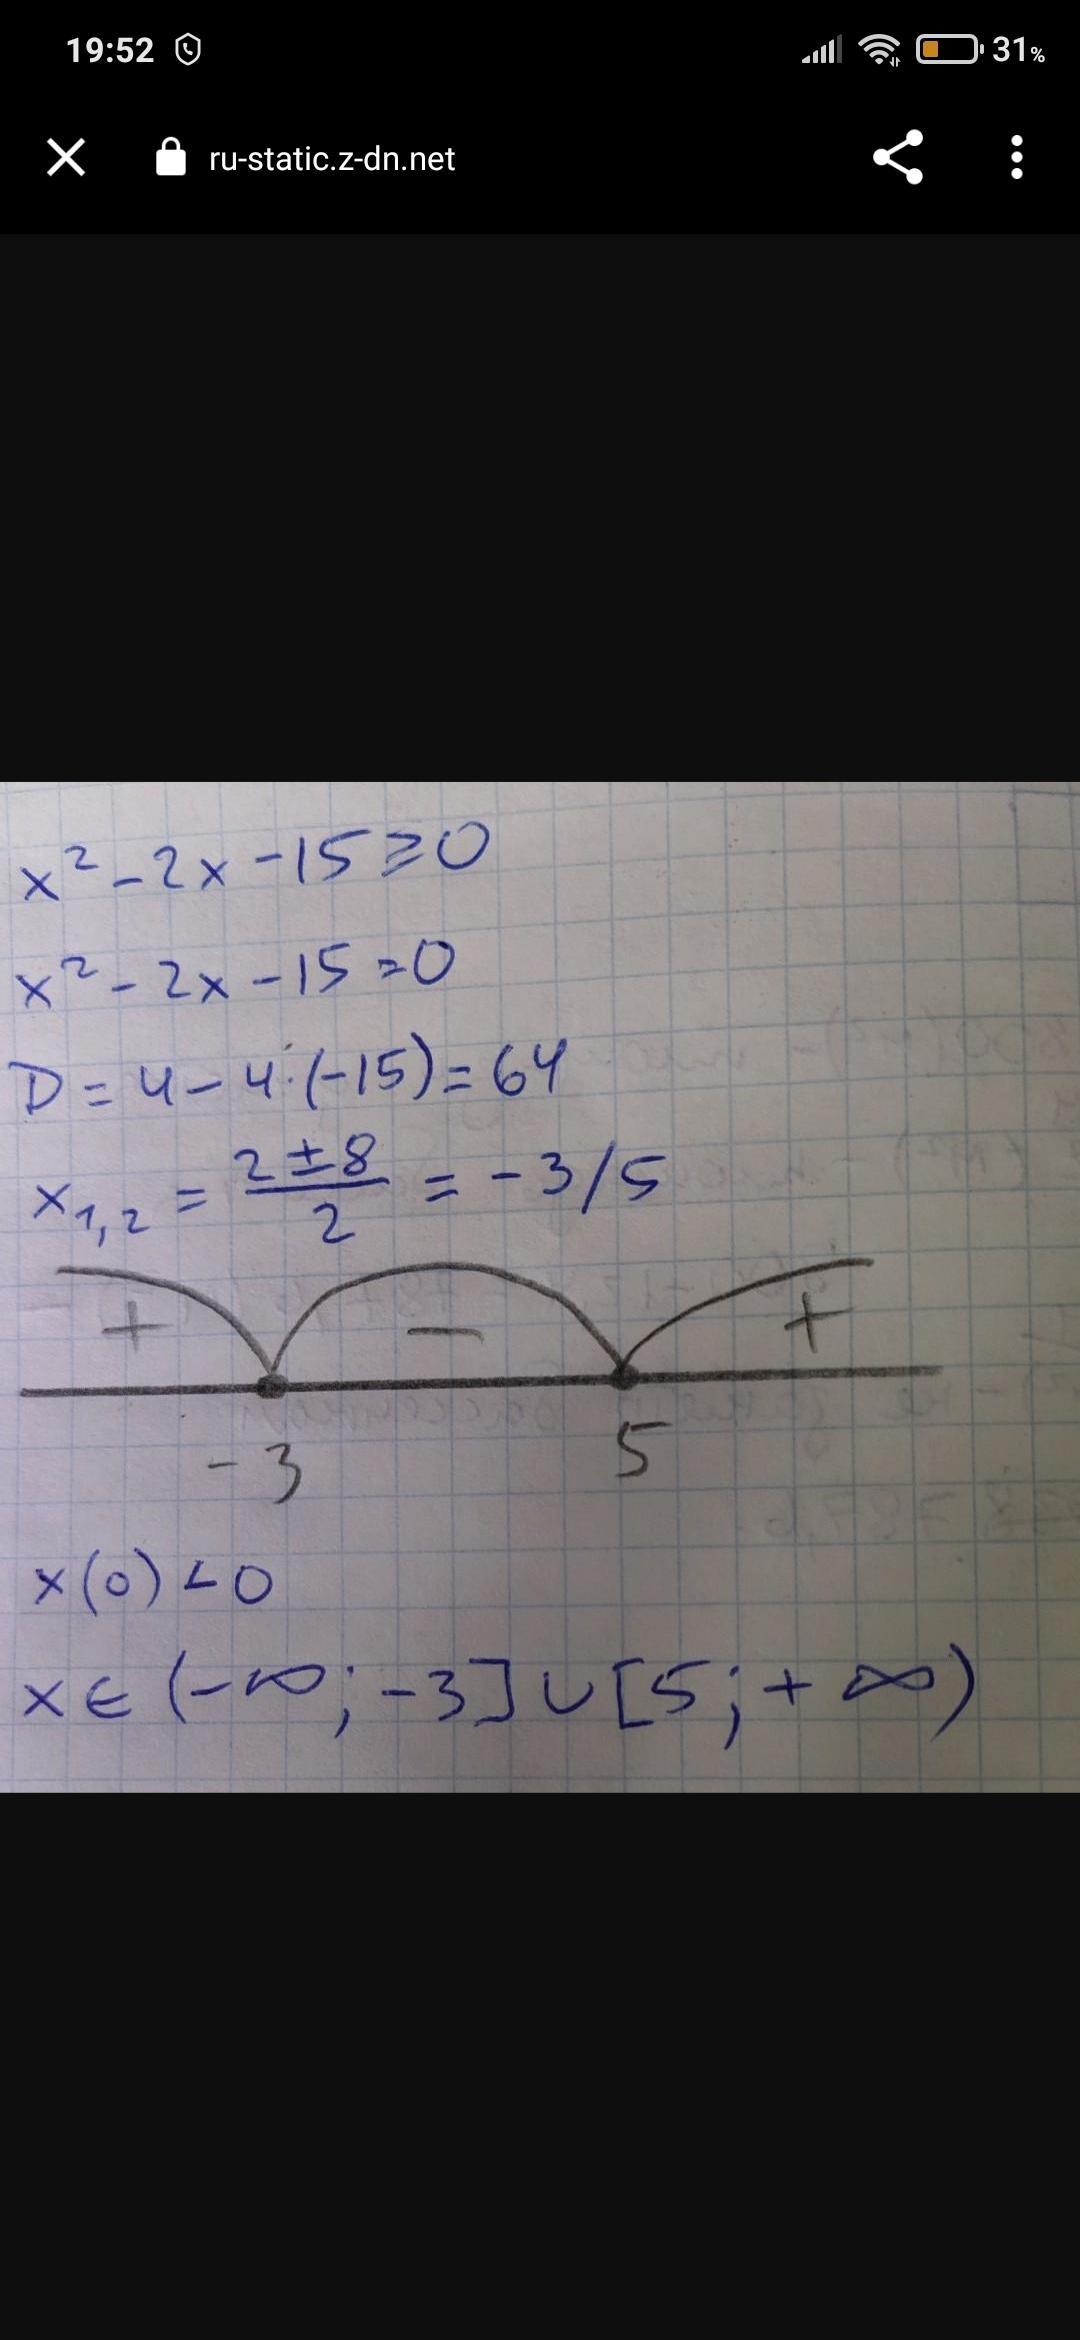 19:52 31%
ru-static.z-dn.net
x² - 2x - 15 ≥ 0
x² - 2x - 15 = 0
D = 4 - 4·(-15) = 64
x₁,₂ = (2 ± 8)/2 = -3/5
+ − +
-3 5
x(0) < 0
x ∈ (-∞; -3] ∪ [5; +∞)